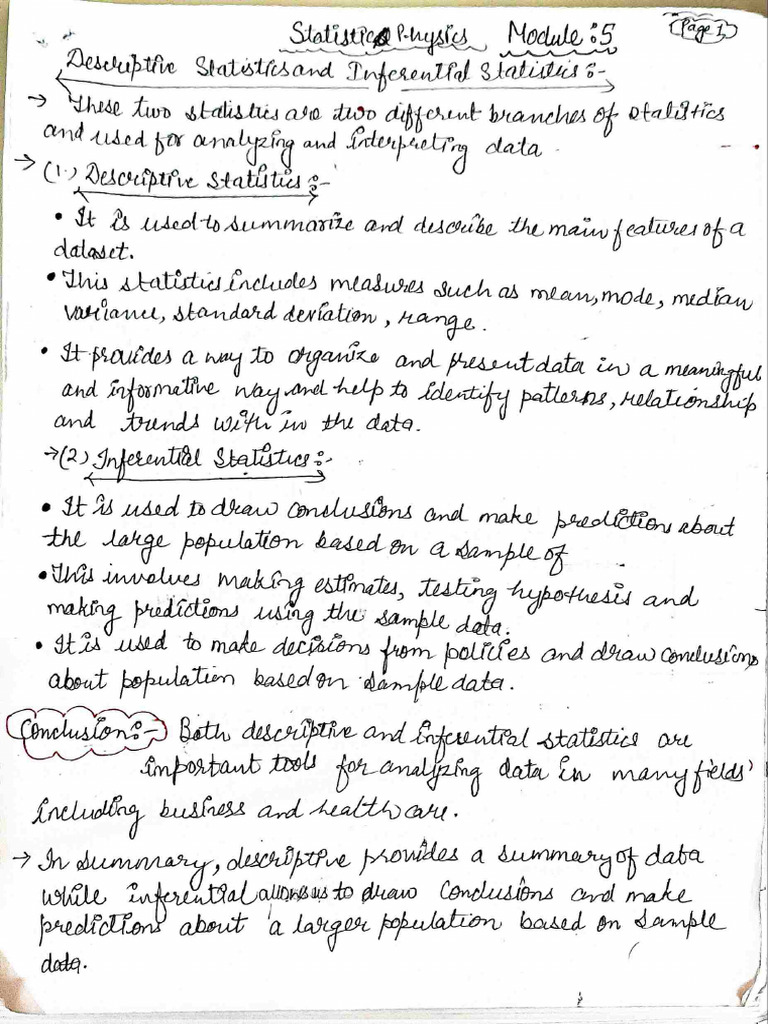 Statistics Physics Module :5 Page 1
Descriptive Statistics and Inferential Statistics :-
→ These two statistics are two different branches of statistics
and used for analyzing and interpreting data
→ (1.) Descriptive Statistics :-
• It is used to summarize and describe the main features of a
dataset.
• This statistics includes measures such as mean, mode, median
variance, standard deviation, range.
• It provides a way to organize and present data in a meaningful
and informative way and help to identify patterns, relationship
and trends with in the data.
→ (2) Inferential Statistics :-
• It is used to draw conclusions and make predictions about
the large population based on a sample of
• This involves making estimates, testing hypothesis and
making predictions using the sample data.
• It is used to make decisions from policies and draw conclusions
about population based on sample data.
Conclusion :- Both descriptive and inferential statistics are
important tools for analyzing data in many fields
including business and health care.
→ In summary, descriptive provides a summary of data
while inferential allows us to draw conclusions and make
predictions about a larger population based on sample
data.